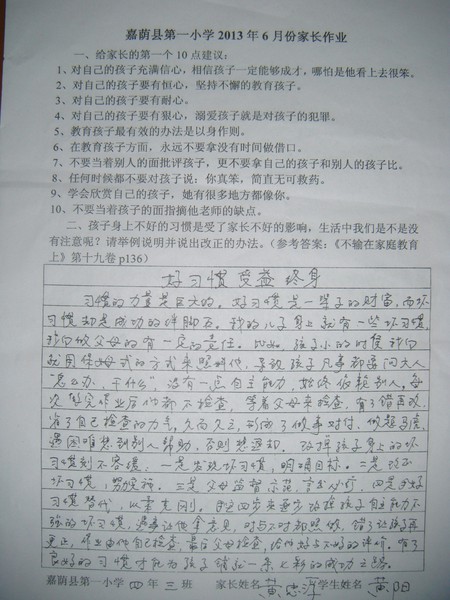 嘉荫县第一小学2013年6月份家长作业
一、给家长的第一个10点建议：
1、对自己的孩子充满信心，相信孩子一定能够成才，哪怕是他看上去很笨。
2、对自己的孩子要有恒心，坚持不懈的教育孩子。
3、对自己的孩子要有耐心。
4、对自己的孩子要有狠心，溺爱孩子就是对孩子的犯罪。
5、教育孩子最有效的办法是以身作则。
6、在教育孩子方面，永远不要拿没有时间做借口。
7、不要当着别人的面批评孩子，更不要拿自己的孩子和别人的孩子比。
8、任何时候都不要对孩子说：你真笨，简直无可救药。
9、学会欣赏自己的孩子，她有很多地方都像你。
10、不要当着孩子的面指摘他老师的缺点。
二、孩子身上不好的习惯是受了家长不好的影响，生活中我们是不是没
有注意呢？请举例说明并说出改正的办法。（参考答案：《不输在家庭教育
上》第十九卷p136）
好习惯 受益 终身
习惯的力量是巨大的。好习惯是一辈子的财富，而坏
习惯却是成功的绊脚石。我的儿子身上就有一些坏习惯，
我们做父母的有一定的责任。比如，孩子小的时候我们
就用保姆式的方式来照料他，导致孩子凡事都要问大人
"怎么办，干什么"，没有一定自主能力，始终依赖别人。每
次写完作业后他都不检查，等着父母来检查，有了错再改，
省了自己检查的力气。久而久之，形成了做事对付，做题马虎，
遇困难想到别人帮助，否则想退却。改掉孩子身上的坏
习惯刻不容缓：一是发现坏习惯，明确目标。二是改正
坏习惯，努力坚持。三是父母监督示范，言出必行。四是好
习惯替代，从需先刚。用这四步来逐步改掉孩子自主能力不
强的坏习惯，遇事让他拿意见，对与不对都照做，错了让孩子再
更正，作业由他自己检查，最后父母检查，给他好与不好的评价。有了
良好的习惯才能为孩子铺就一条七彩的成功之路。
嘉荫县第一小学 四 年 三 班 家长姓名 黄忠萍 学生姓名 黄阳